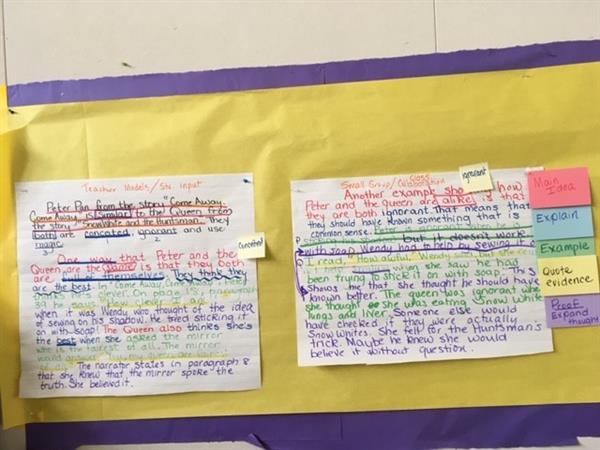 Teacher Models/Stu input
Peter Pan from the story "Come Away,
Come Away" is similar to the Queen from
the story "Snow White and the Huntsman." They
both are conceited, ignorant and use
magic.
1 2
3
One way that Peter and the
Queen are the same is that they both
are full of themselves. They think they
are the best. In "Come Away, Come Away"
so he says How clever I am
when it was Wendy who thought of the idea
of sewing on his shadow. He tried sticking it
on with soap! The Queen also thinks she's
the best when she asked the mirror
who is the fairest of all. The mirror
would answer
The narrator states in paragraph 8
that she knew that the mirror spoke the
truth. She believed it.
conceited
Small Group/Class Collaboration
ignorant
Another example how
Peter and the queen are alike is that
they are both ignorant. That means that
they should have known something that is
common sense. Peter is ignorant
but it doesn't work
with soap. Wendy had to help by sewing it on.
I read "How awful," Wendy said but she
when she saw he had
been trying to stick it on with soap. This
shows me that she thought he should have
known better. The queen was ignorant when
she thought she was eating Snow White's
lungs and liver. Someone else would
have checked if they were actually
Snow White's. She fell for the Huntsman's
trick. Maybe he knew she would
believe it without question.
Main
Idea
Explain
Example
Quote
evidence
Proof
Expand
thought